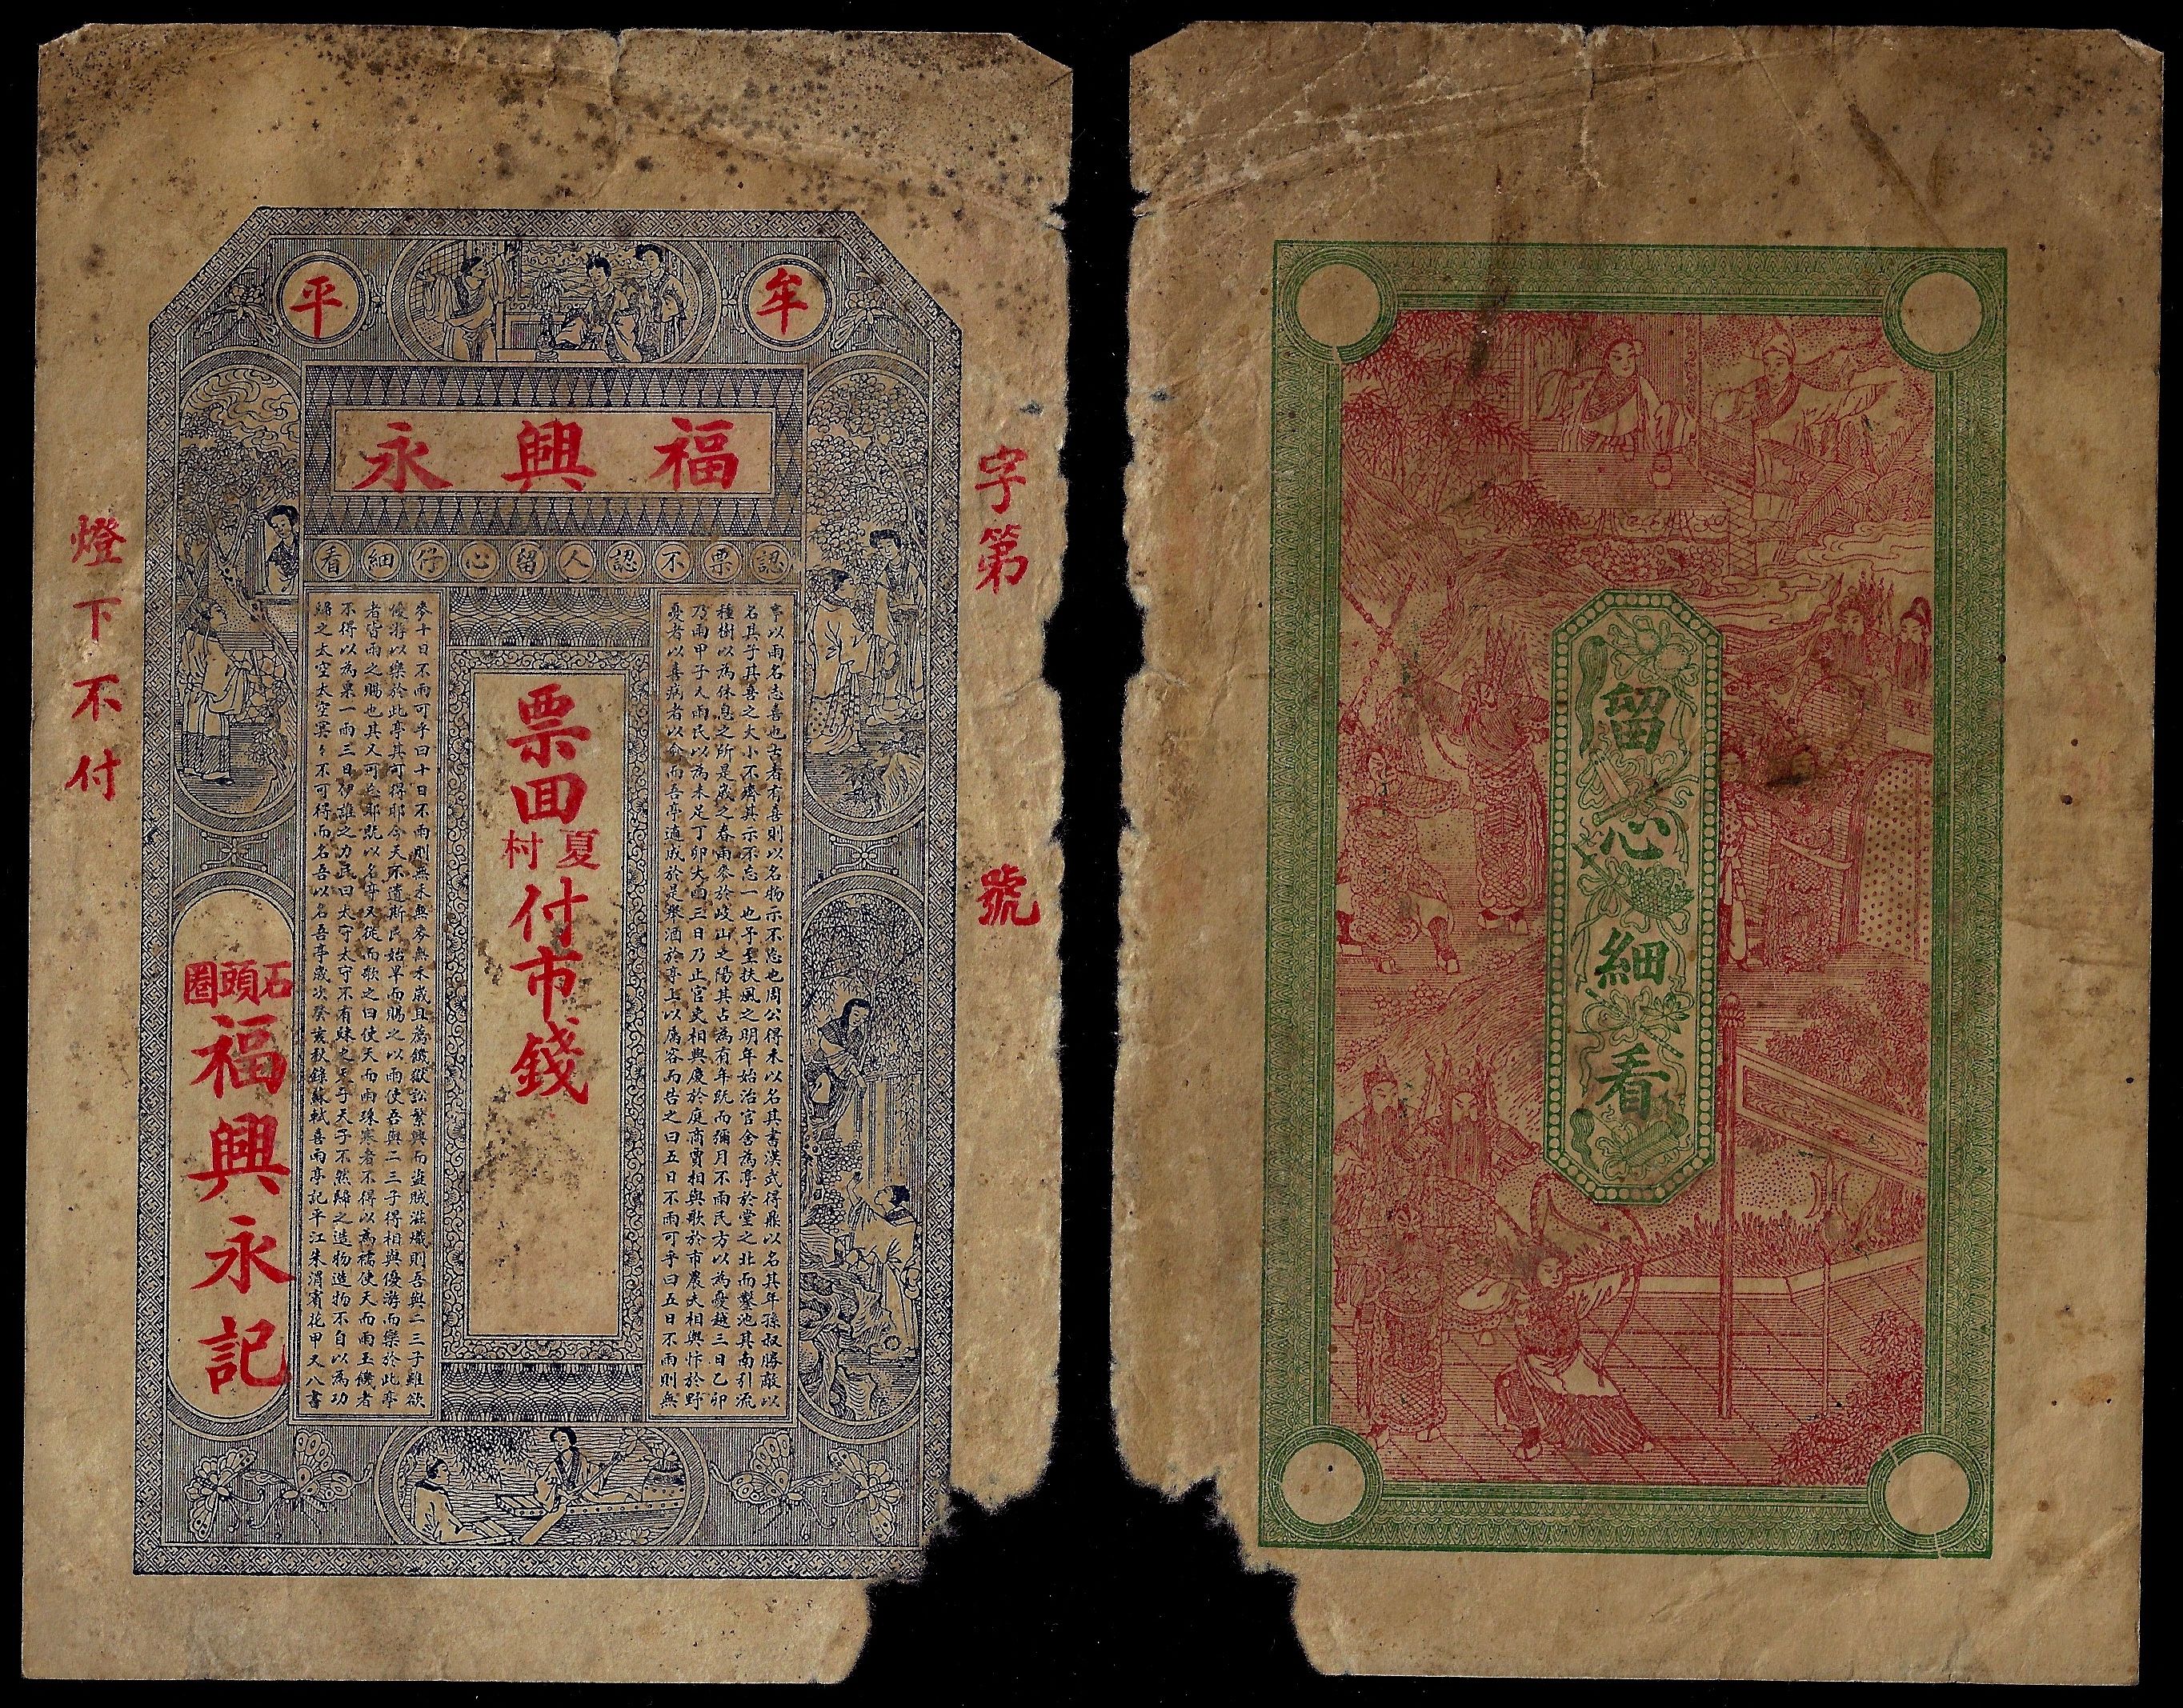 牟平
福興永
認票不認人留心仔細看
字第　號
亭以雨名志喜也古者有喜則以名物示不忘也周公得禾以名其書漢武得鼎以名其年孫叔勝敵以
名其子其喜之大小不齊其示不忘一也予至扶風之明年始治官舍為亭於堂之北而鑿池其南引流
種樹以為休息之所是歲之春雨麥於岐山之陽其占為有年既而彌月不雨民方以為憂越三日乙卯
乃雨甲子又雨民以為未足丁卯大雨三日乃止官吏相與慶於庭商賈相與歌於市農夫相與忭於野
憂者以喜病者以愈而吾亭適成於是舉酒於亭上以屬客而告之曰五日不雨可乎曰五日不雨則無
票回夏村付市錢
麥十日不雨可乎曰十日不雨則無禾無麥無禾歲且薦饑獄訟繁興而盜賊滋熾則吾與二三子雖欲
優游以樂於此亭其可得耶今天不遺斯民始旱而賜之以雨使吾與二三子得相與優游而樂於此亭
者皆雨之賜也其又可忘耶既以名亭又從而歌之曰使天而雨珠寒者不得以為襦使天而雨玉饑者
不得以為粟一雨三日伊誰之力民曰太守太守不有歸之天子天子不然歸之造物造物不自以為功
歸之太空太空冥々不可得而名吾以名吾亭歲次癸亥秋錄蘇軾喜雨亭記平江朱渭賓花甲又八書
石頭圈
福興永記
燈下不付
留心細看